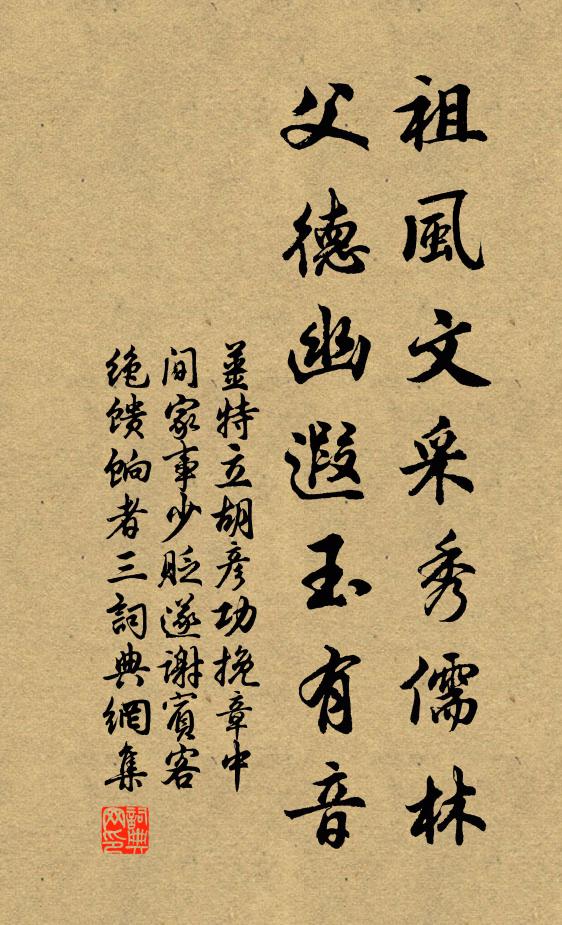 祖風文采秀儒林
父德幽遐玉有音
姜特立胡彥功挽章中
间家事少貶遂谢賓客
绝馈餉者三詞典網集
詞典網印